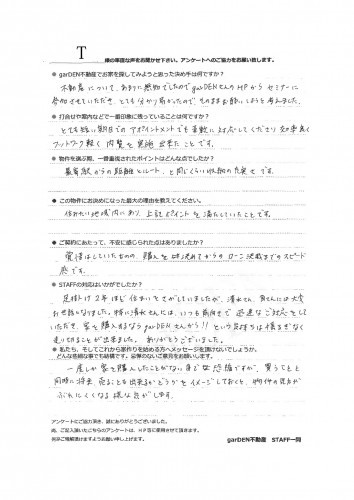 T 様の率直な声をお聞かせ下さい。アンケートへのご協力をお願い致します。
※ garDEN不動産でお家を探してみようと思った決め手は何ですか?
不動産について、あまりに無知でしたのでgarDENさんのHPから セミナーに
参加させていただき、とても分かり易かったので そのままお願いしようと考えました。
※ 打合せや案内などで一番印象に残っていることは何ですか?
とても短い期日でのアポイントメントでも柔軟に対応してくださり 効率良く
フットワーク軽く 内覧を実施 出来たことです。
※ 物件を選ぶ際、一番重視されたポイントはどんな点でしたか?
最寄駅からの距離とルート、と同じくらい収納の充実 です。
※ この物件にお決めになった最大の理由を教えてください。
住みたい地域内にあり、上記ポイントを満たしていたことです。
※ ご契約にあたって、不安に感じられた点はありましたか?
覚悟はしていたものの、購入を決めてからの ローン決裁までのスピード
感です。
※ STAFFの対応はいかがでしたか?
足掛け2年ほど 住まいをさがしていましたが、清水さん、には大変
お世話になりました。特に清水さんには、いつも前向きで 迅速なご対応を
いただき、家を購入するなら garDENさんから!! という気持ちは揺るぎなく
ことが出来ました。 ありがとうございました。
※ 私たち、そしてこれから家作りを始める方へメッセージを頂けないでしょうか。
どんな些細な事でも結構です。忌憚のないご意見をお願いします。
一度しか家を購入したことがない身で恐縮ですが、買うことと
同時に将来、売ることも出来るかどうかをイメージしておくと、物件の見方が
ぶれにくくなる様な気がします。
アンケートにご協力頂き、誠にありがとうございました。
尚、ご記入頂いたこちらのアンケートは、HP等に使用させて頂きます。
何卒ご理解頂けますようお願い申し上げます。
garDEN不動産 STAFF一同